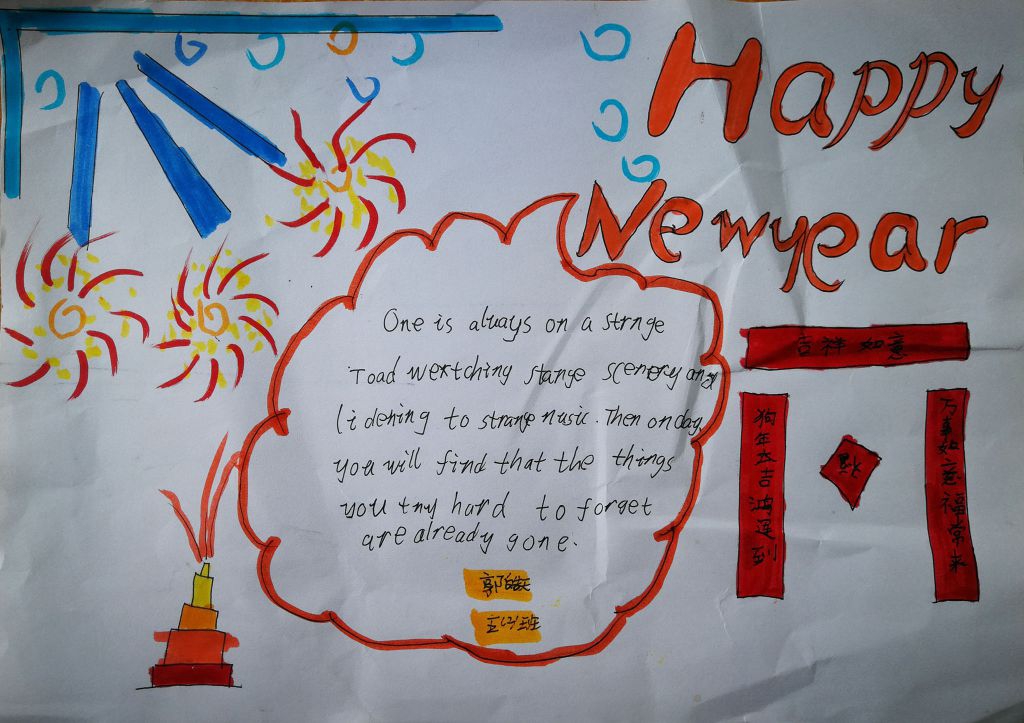 Happy
Newyear
One is always on a strnge
Toad wertching stange scenery and
lidening to strange nusic. Then on day
you will find that the things
you try hard to forget
are already gone.
吉祥如意
狗年大吉鸿运到
万事如意福常来
郭
班